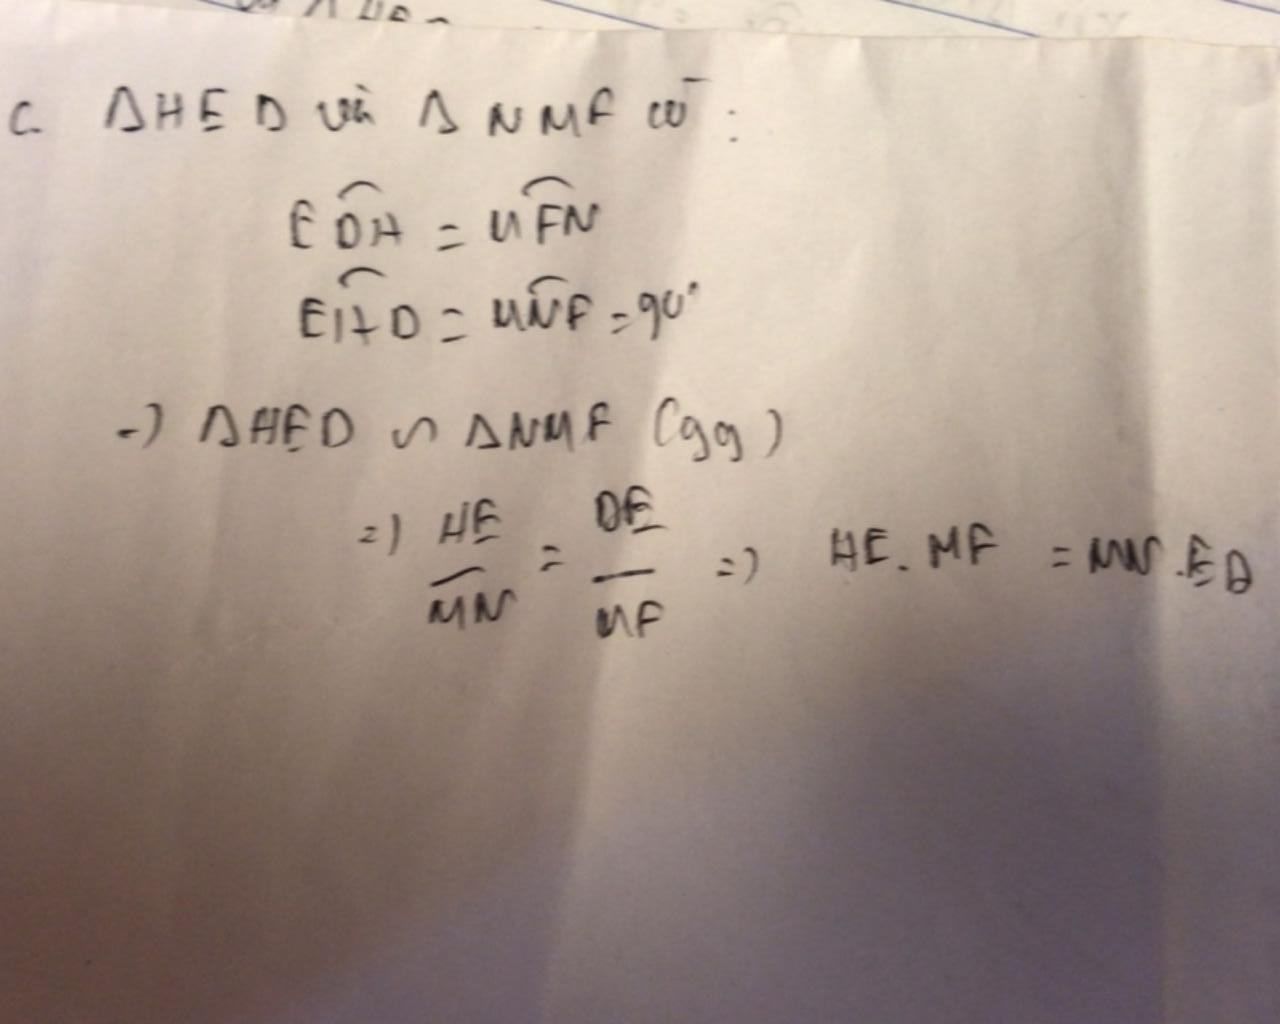 c. ΔHED và ΔNMF có:
EDH = MFN
EHD = MNF = 90°
=) ΔHED ∽ ΔNMF (gg)
=) HE/MN = DE/MF =) HE.MF = MN.ED